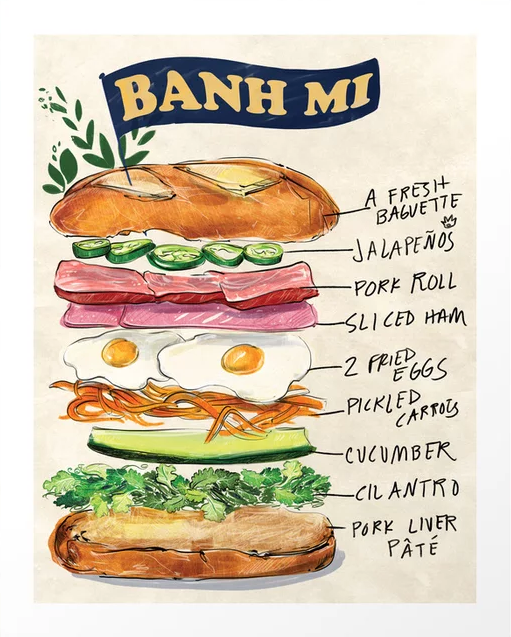 BANH MI
A FRESH
BAGUETTE
JALAPEÑOS
PORK ROLL
SLICED HAM
2 FRIED
EGGS
PICKLED
CARROTS
CUCUMBER
CILANTRO
PORK LIVER
PÂTÉ